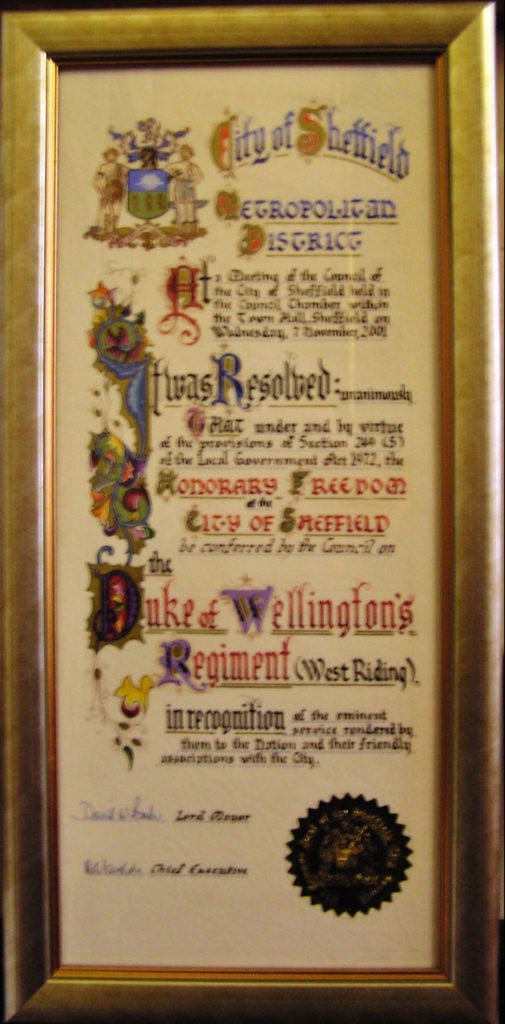 City of Sheffield
Metropolitan
District
At a Meeting of the Council of
the City of Sheffield held in
the Council Chamber within
the Town Hall, Sheffield on
Wednesday, 7 November, 2001
It was Resolved: unanimously
That under and by virtue
of the provisions of Section 249 (5)
of the Local Government Act 1972, the
Honorary Freedom
of the
City of Sheffield
be conferred by the Council on
the
Duke of Wellington's
Regiment (West Riding),
in recognition of the eminent
service rendered by
them to the Nation and their friendly
associations with the City.
Lord Mayor
Chief Executive